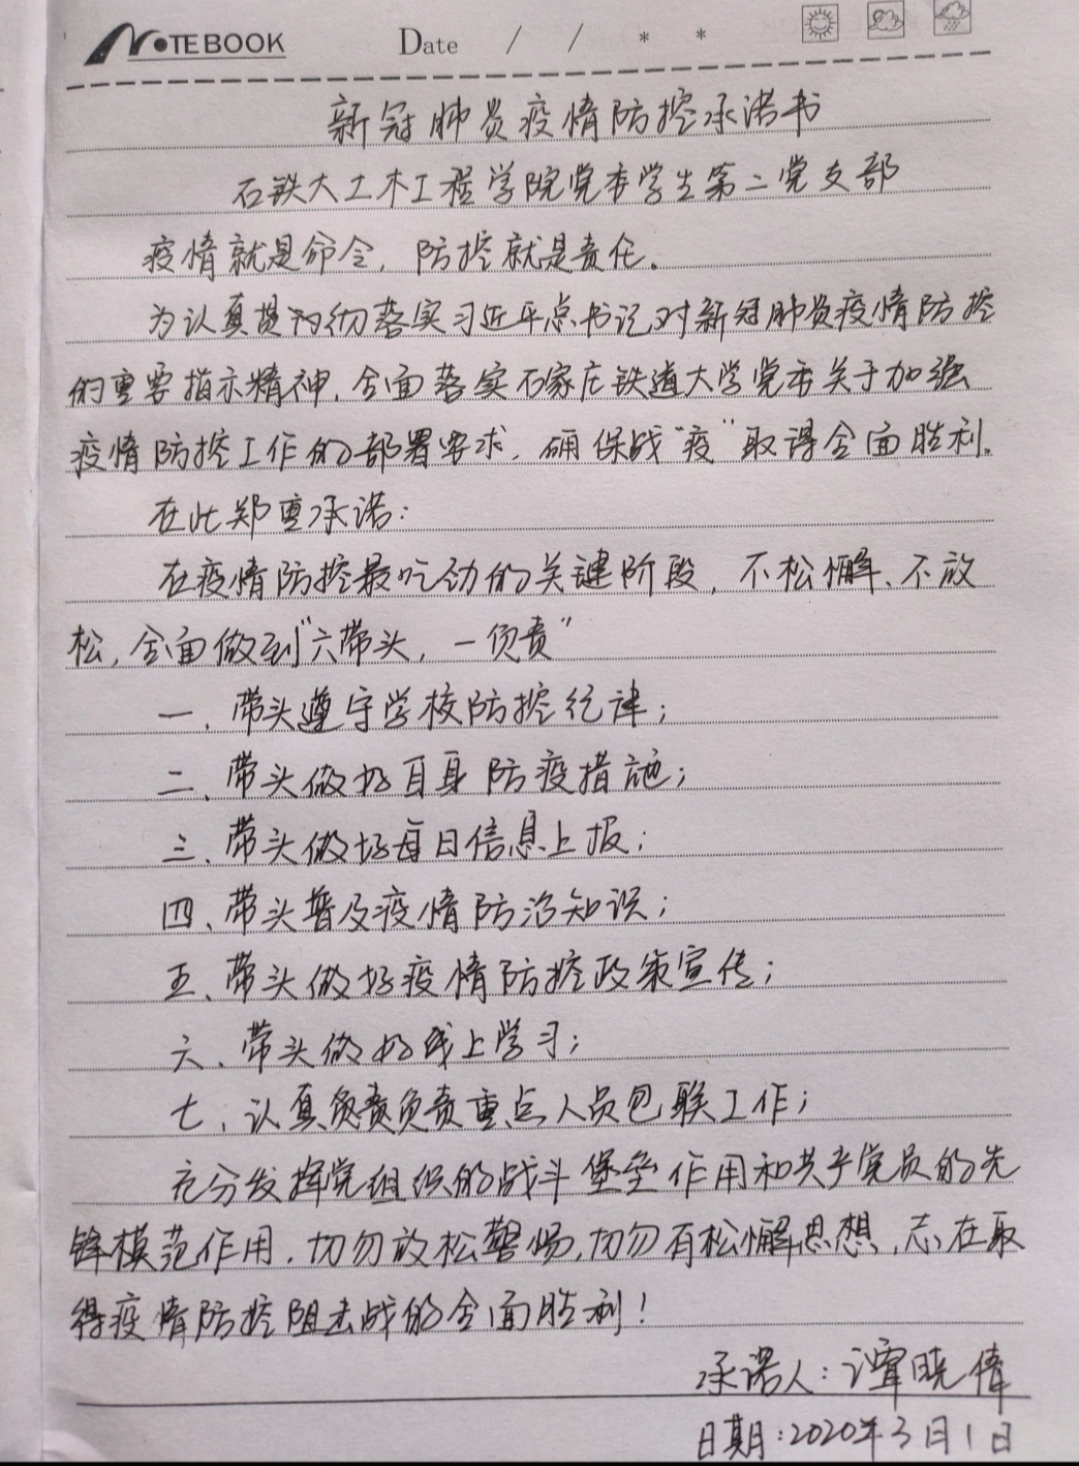 NOTEBOOK Date / / * *
新冠肺炎疫情防控承诺书
石铁大土木工程学院党委学生第二党支部
疫情就是命令，防控就是责任。
为认真贯彻落实习近平总书记对新冠肺炎疫情防控
的重要指示精神，全面落实石家庄铁道大学党委关于加强
疫情防控工作的部署要求，确保战“疫”取得全面胜利。
在此郑重承诺：
在疫情防控最吃劲的关键阶段，不松懈、不放
松，全面做到“六带头，一负责”
一、带头遵守学校防控纪律；
二、带头做好自身防疫措施；
三、带头做好每日信息上报；
四、带头普及疫情防治知识；
五、带头做好疫情防控政策宣传；
六、带头做好线上学习；
七、认真负责负责重点人员包联工作；
充分发挥党组织的战斗堡垒作用和共产党员的先
锋模范作用，切勿放松警惕，切勿有松懈思想，志在取
得疫情防控阻击战的全面胜利！
承诺人：谭晓伟
日期：2020年3月1日